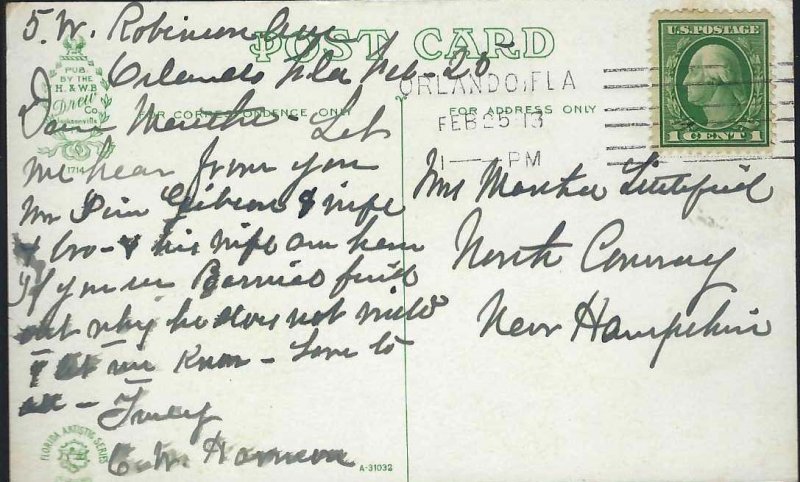 5. W. Robinson Ave
Orlando Fla Feb-25
POST CARD
PUB.
BY THE
H. & W.B.
Drew
Co.
Jacksonville
1714
FOR CORRESPONDENCE ONLY
FOR ADDRESS ONLY
ORLANDO, FLA
FEB 25 13
1 — PM
U.S. POSTAGE
1 CENT 1
Dear Martha - Let
me hear from you
Mr Gibson & wife
& bro - & his wife are here
If you see find
out why he does not write
& let me know - Love to
all - Truly
C. W.
Mrs Martha Littlefield
North Conway
New Hampshire
FLORIDA ARTISTIC SERIES
A-31032